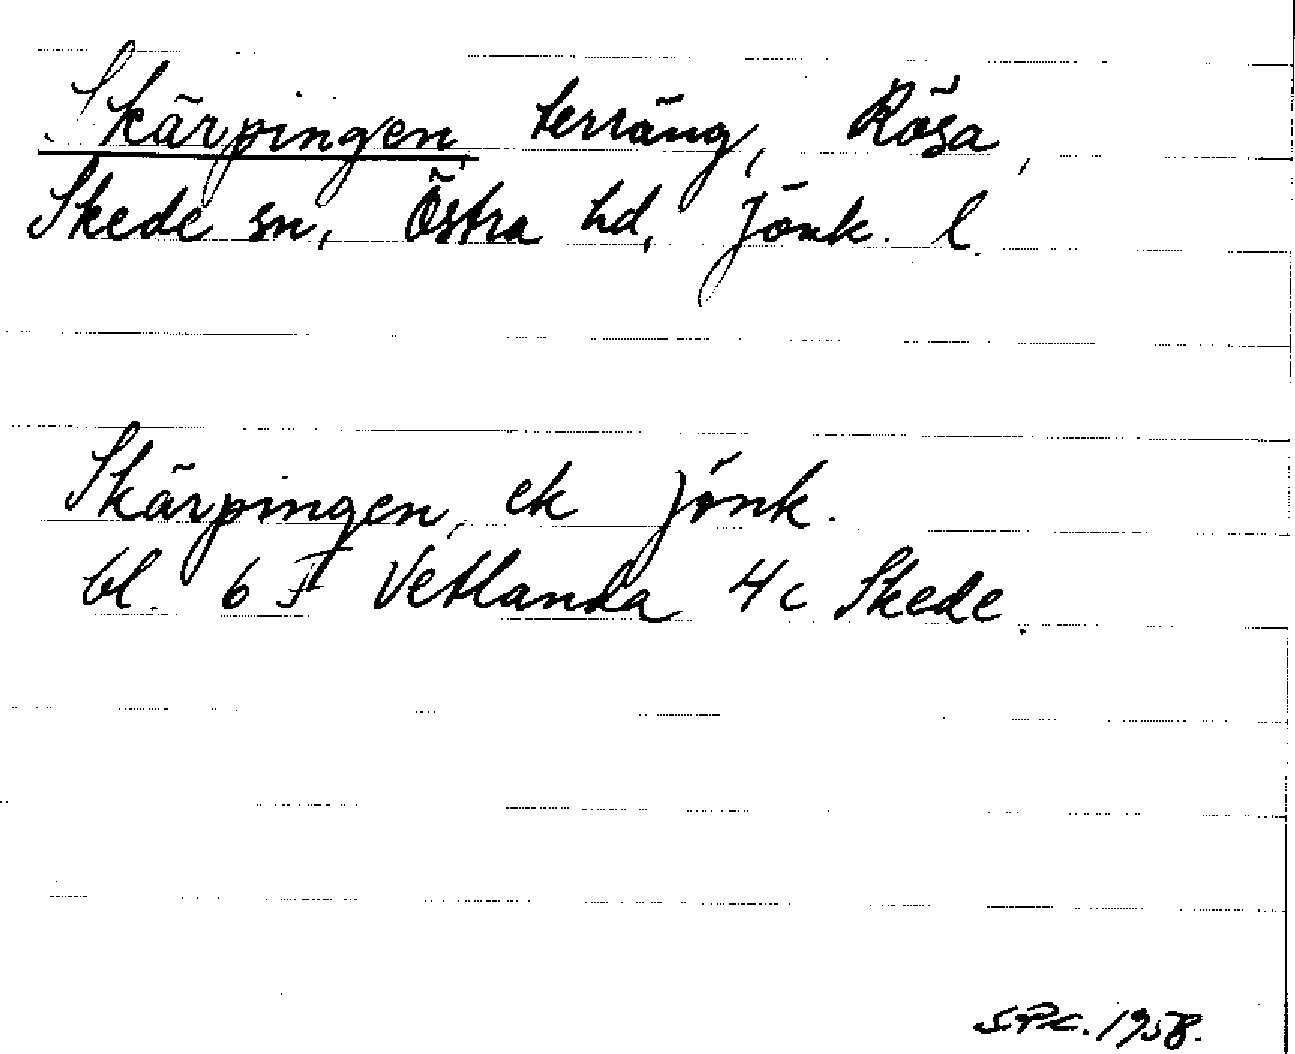 Skärpingen, terräng, Rösa,
Skede sn, Östra hd, Jönk. l.
Skärpingen, ek Jönk.
bl. 6 F Vetlanda 4c Skede.
S.P.C. 1958.